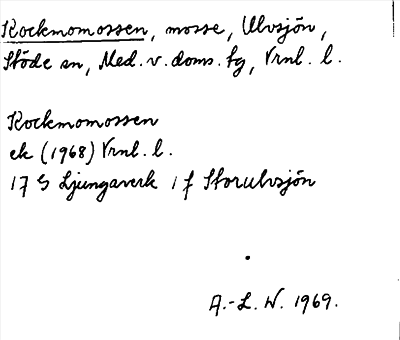 Kockmomossen, mosse, Ulvsjön,
Stöde sn, Med. v. doms. tg, Vrnl. l.
Kockmomossen
ek (1968) Vrnl. l.
17 G Ljungaverk 1 f Storulvsjön
A.-L. W. 1969.